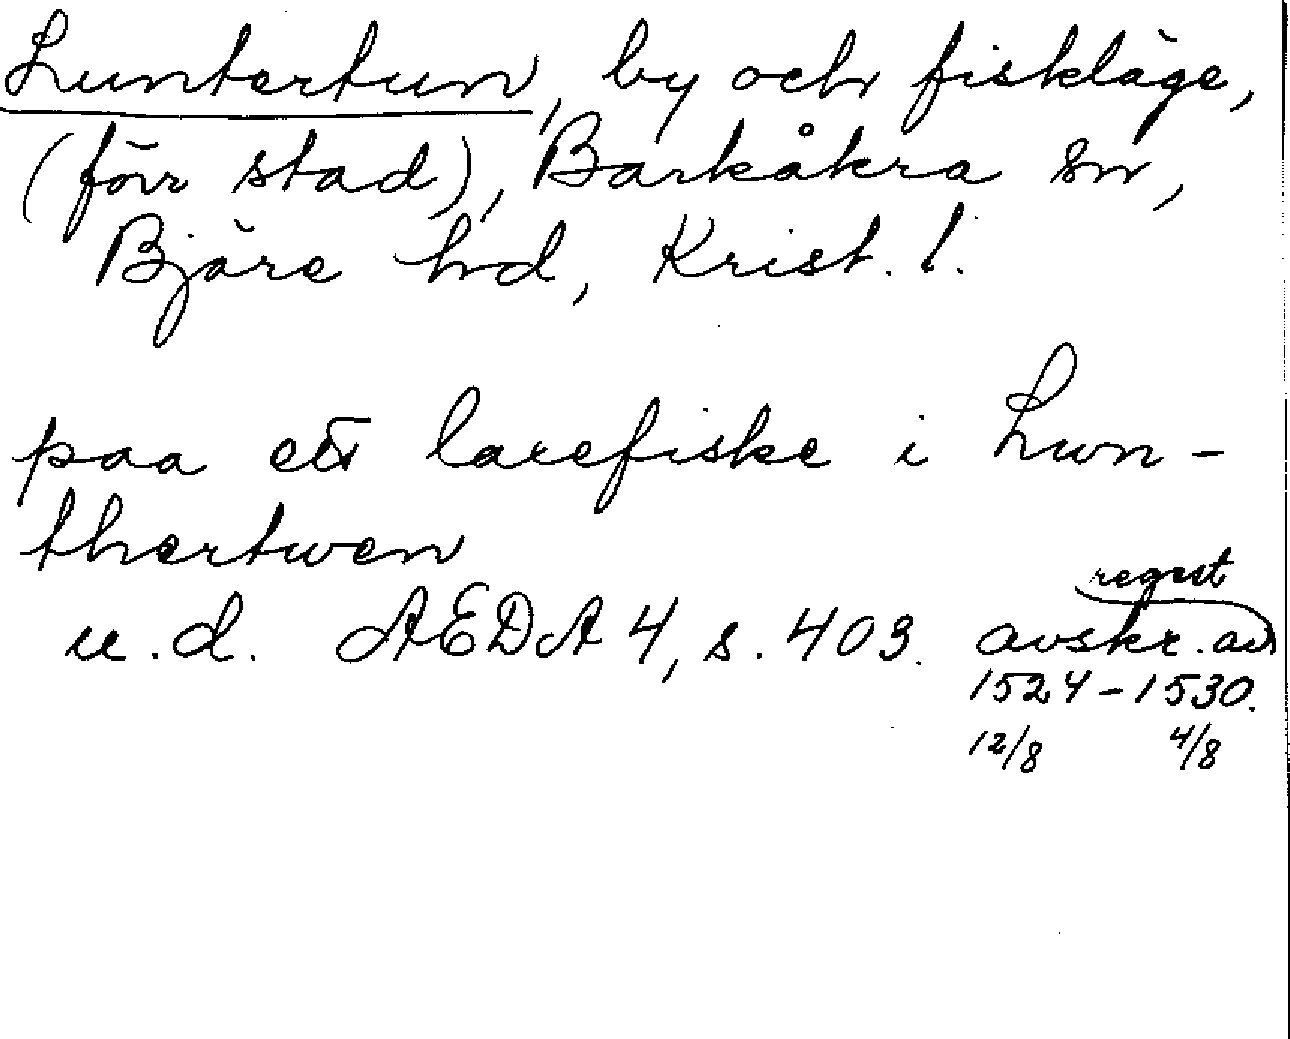 Luntertun, by och fiskläge,
(förr stad), Barkåkra sn,
Bjäre hd, Krist. l.
paa ett laxefiske i Lwn-
thertwen
u.d. AEDA 4, s. 403. avskr. av
regest
1524-1530.
12/8 4/8